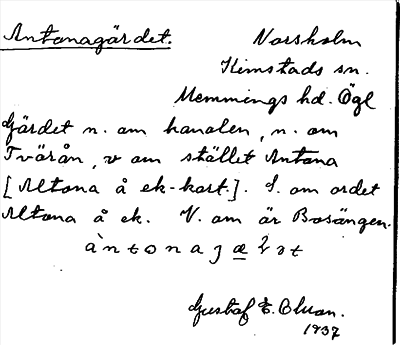 Antonagärdet. Norsholm
Kimstads sn.
Memmings hd. Ögl
Gärdet n. om kanalen, n. om
Tvärån, v om stället Antona
[Altona å ek-kart.]. S. om ordet
Altona å ek. V. om är Bosängen.
Gustaf E.
1937